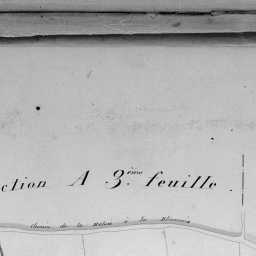 ction A 3.ème feuille.
Chemin de la à la